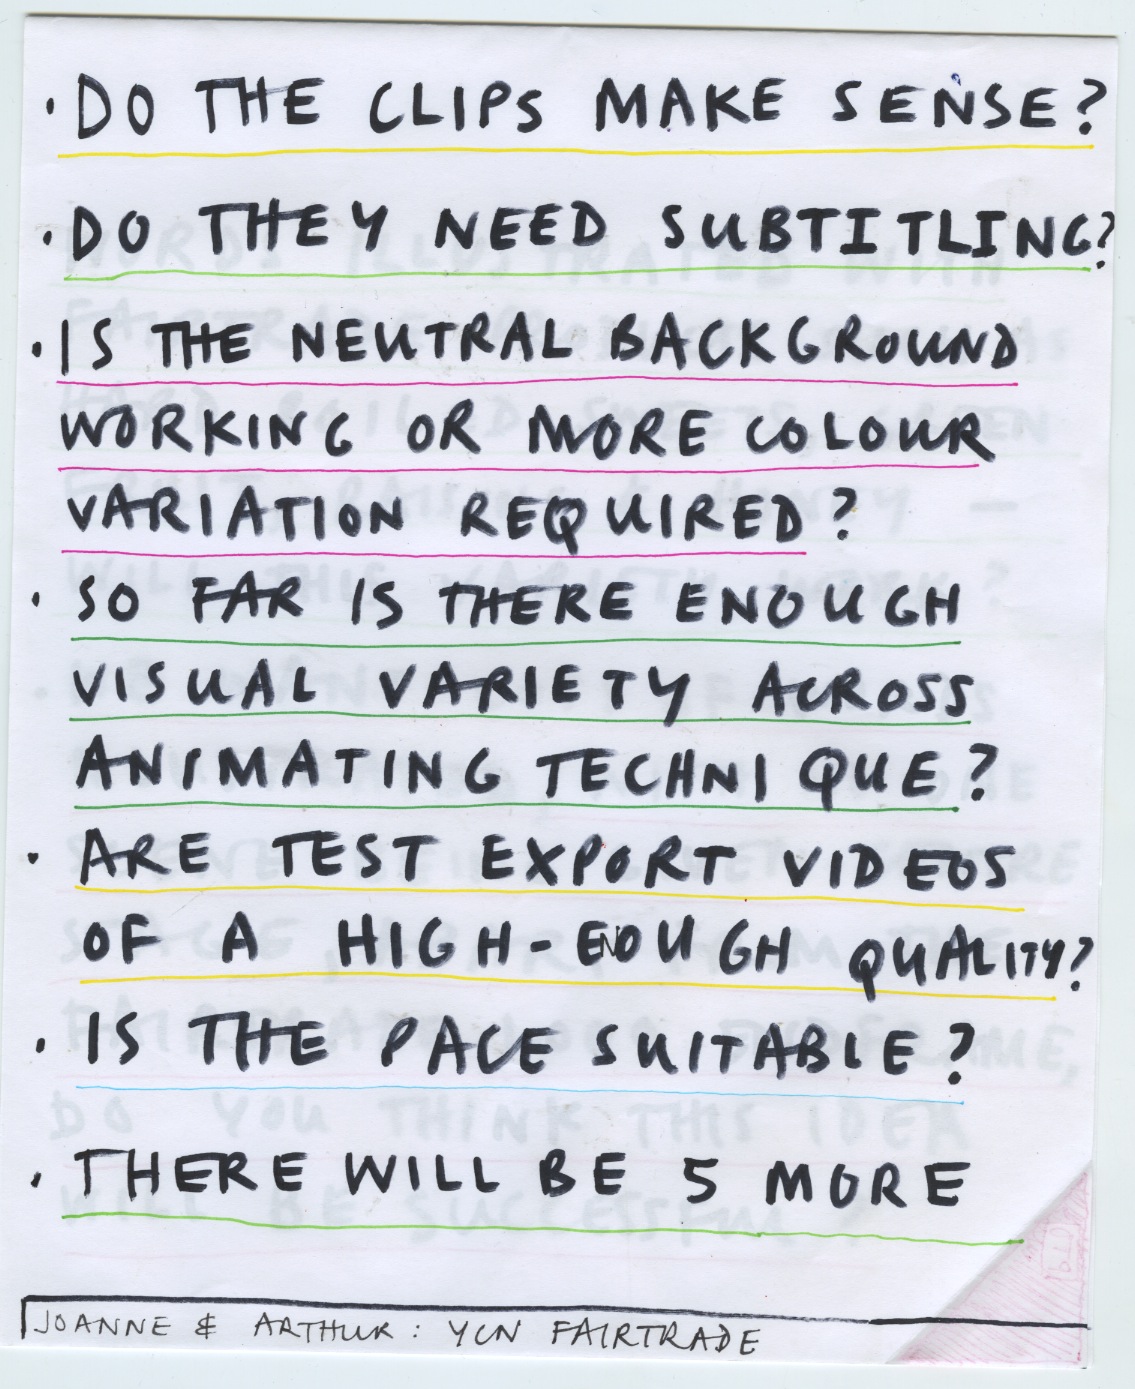 · DO THE CLIPS MAKE SENSE?
· DO THEY NEED SUBTITLING?
· IS THE NEUTRAL BACKGROUND
WORKING OR MORE COLOUR
VARIATION REQUIRED?
· SO FAR IS THERE ENOUGH
VISUAL VARIETY ACROSS
ANIMATING TECHNIQUE?
· ARE TEST EXPORT VIDEOS
OF A HIGH-ENOUGH QUALITY?
· IS THE PACE SUITABLE?
· THERE WILL BE 5 MORE
JOANNE & ARTHUR: YCN FAIRTRADE